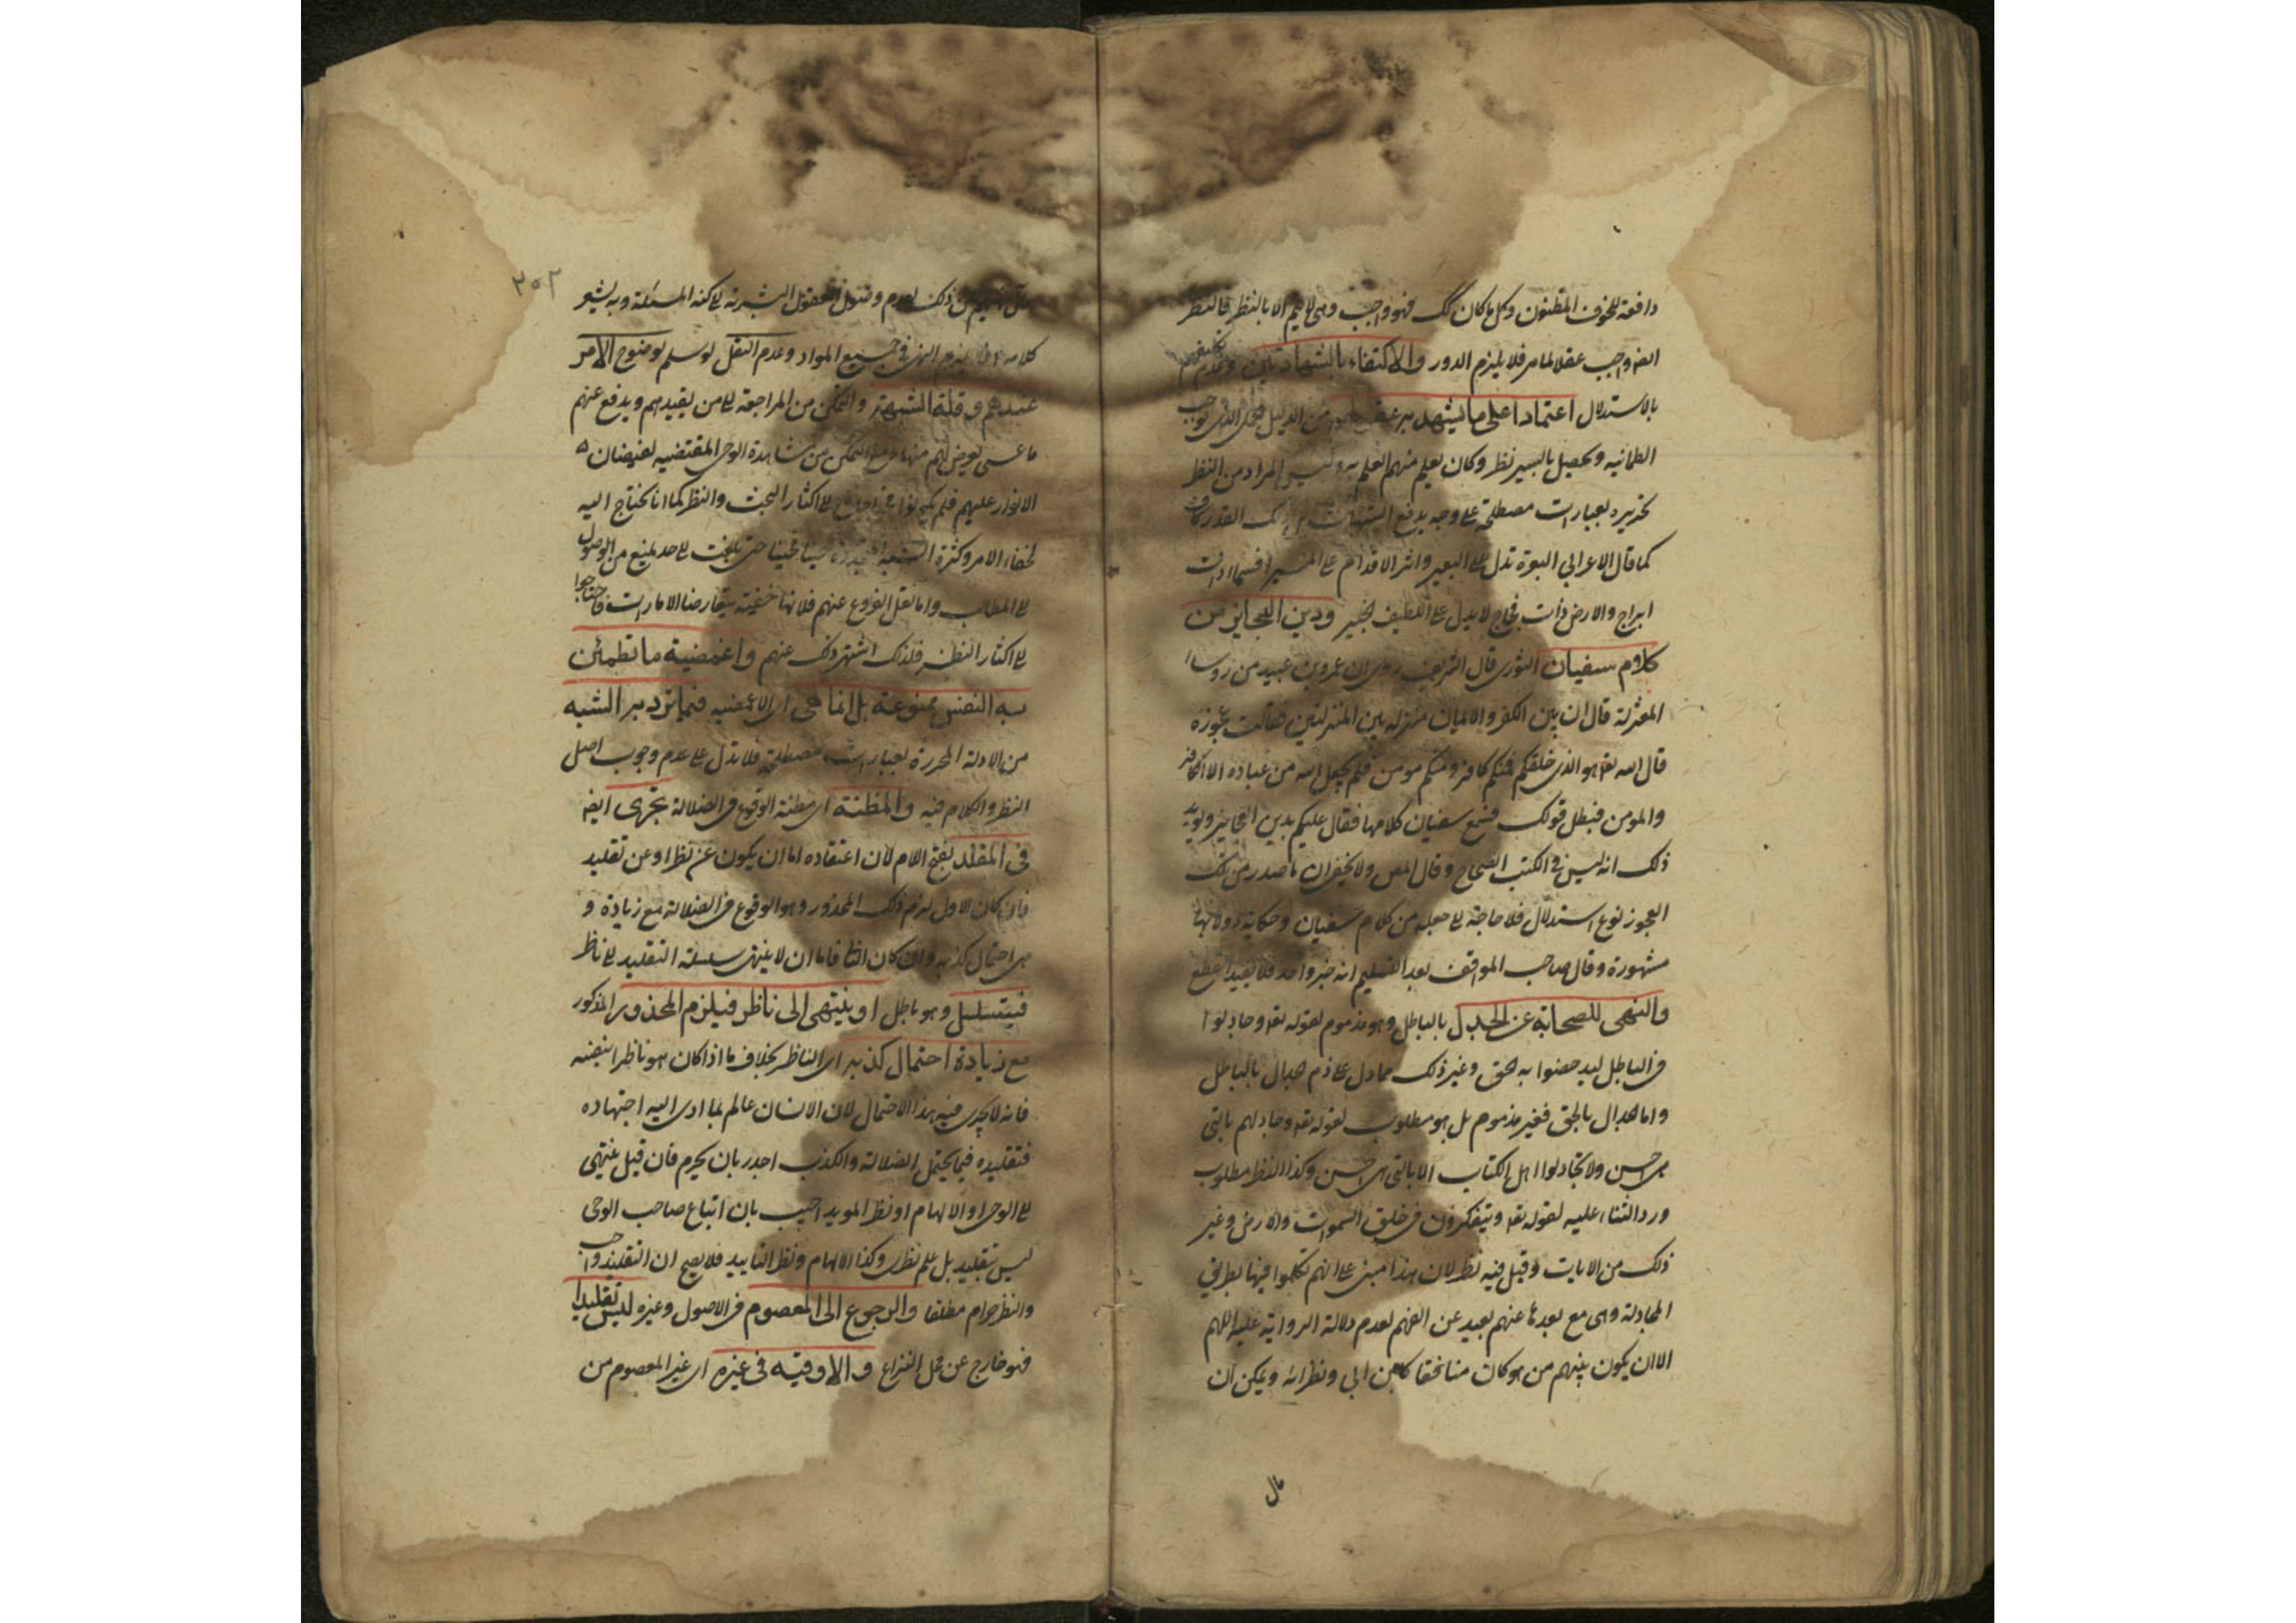 دافعة للخوف المظنون وكل ما كان كك فهو واجب وهى لا يتم الا بالنظر فالنظر
ايضا واجب عقلا لما مر فلا يلزم الدور والاكتفاء بالشهادتين وعدم تكليفهم
بالاستدلال اعتمادا على ما يشهد به عقولهم من الدليل الجملى الذى يوجب
الطمانية ويحصل بايسر نظر وكان يعلم منهم العلم به وليس المراد من النظر
تحريره بعبارات مصطلحة على وجه يدفع الشبهات بل ذلك القدر كاف
كما قال الاعرابى البعرة تدل على البعير واثر الاقدام على المسير افسماء ذات
ابراج والارض ذات فجاج لا يدل على اللطيف الخبير ودين العجايز من
كلام سفيان الثورى قال الشريف روى ان عمرو بن عبيد من روساء
المعتزلة قال ان بين الكفر والايمان منزلة بين المنزلتين فقالت عجوزة
قال الله تعه هو الذى خلقكم فمنكم كافر ومنكم مومن فلم يجعل الله من عباده الا الكافر
والمومن فبطل قولك فسمع سفيان كلامها فقال عليكم بدين العجايز ويويد
ذلك انه ليس فى الكتب الصحاح وقال المص ولا يخفى ان ما صدر من تلك
العجوز نوع استدلال فلا حاجة الى جعله من كلام سفيان وحكاية دولابها
مشهورة وقال صاحب المواقف بعد التسليم انه خبر واحد فلا يفيد القطع
والنهى للصحابة عن الجدل بالباطل وهو مذموم لقوله تعه وجادلوا
فى الباطل ليدحضوا به الحق وغير ذلك مما دل على ذم جدال بالباطل
واما الجدال بالحق فغير مذموم بل هو مطلوب لقوله تعه وجادلهم بالتى
هى احسن ولا تجادلوا اهل الكتاب الا بالتى هى احسن وكذا النظر مطلوب
ورد الثناء عليه لقوله تعه ويتفكرون فى خلق السموات والارض وغير
ذلك من الايات وقيل فيه نظر لان هذا مبنى على انهم تكلموا فيها بطريق
المجادلة وهى مع بعدها عنهم بعيد عن الفهم لعدم دلالة الرواية عليه اللهم
الا ان يكون بينهم من هو كان منافقا كابن ابى ونظرائه ويمكن ان
يقال
٢٥٢
نهيهم عن ذلك لعدم وصول العقول البشرية الى كنه المسئلة وبه يشعر
كلامه فلا يلزم النهى فى جميع المواد وعدم النقل لو سلم لوضوح الامر
عندهم وقلة الشبهة والتمكن من المراجعة الى من يفيدهم ويدفع عنهم
ما عسى يعرض لهم منها مع التمكن من مشاهدة الوحى المقتضية لفيضان
الانوار عليهم فلم يحتاجوا الى اكثار البحث والنظر كما انا نحتاج اليه
لخفاء الامر وكثرة الشبه حينا فحينا حتى بلغت الى حد يمنع من الوصول
الى المطالب واما نقل الفروع عنهم فلانها خفية بتعارض الامارات فاحتاجوا
الى اكثار النظر فلذلك اشتهر ذلك عنهم واغمضية ما تطمئن
به النفس ممنوعة بل انما هى اى الاغمضية فيما ترد به الشبه
من الادلة المحررة بعبارات مصطلحة فلا تدل على عدم وجوب اصل
النظر والكلام فيه والمظنة اى مظنة الوقوع فى الضلالة تجرى ايضا
فى المقلد بفتح اللام لان اعتقاده اما ان يكون عن نظر او عن تقليد
فان كان الاول لزم ذلك المحذور وهو الوقوع فى الضلالة مع زيادة و
هى احتمال كذبه وان كان الثانى فاما ان لا ينتهى سلسلة التقليد الى ناظر
فيتسلسل وهو باطل او ينتهى الى ناظر فيلزم المحذور المذكور
مع زيادة احتمال كذبه اى الناظر بخلاف ما اذا كان هو ناظرا بنفسه
فانه لا يجرى فيه هذا الاحتمال لان الانسان عالم بما ادى اليه اجتهاده
فتقليده فيما يحتمل الضلالة والكذب اجدر بان يحرم فان قيل ينتهى
الى الوحى او الالهام او نظر المويد اجيب بان اتباع صاحب الوحى
ليس تقليد بل علم نظرى وكذا الالهام ونظر التاييد فلا يصح ان التقليد واجب
والنظر حرام مطلقا والرجوع الى المعصوم فى الاصول وغيره ليس تقليدا
فهو خارج عن محل النزاع والاوقية فى غيره اى غير المعصوم من